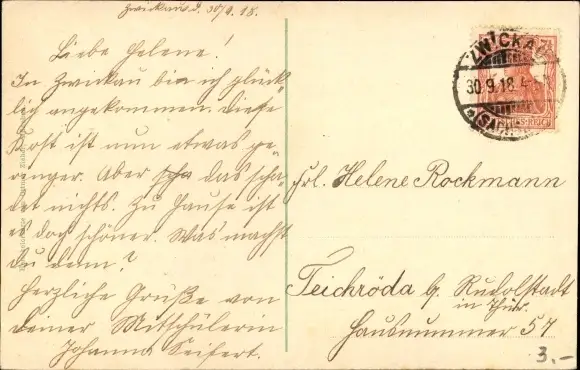 Zwickau d. 30/9.18.
Liebe Helene!
In Zwickau bin ich glück-
lich angekommen. Diese
Kost ist nun etwas ge-
renger. Aber scha das scha-
det nichts. Zu Hause ist
es doch schöner. Was machst
du denn?
Herzliche Grüße von
deiner Mitschülerin
Johanna Seifert.
ZWICKAU
30.9.18.4
(SACHS
Frl. Helene Rockmann
Teichröda b. Rudolstadt
in Thür.
Hausnummer 57
3.-